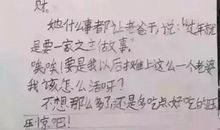 财。
她什么事都让老爸干,说:“过年就
是要一家之主做事。”
唉唉!要是我以后摊上这么一个老婆
我该怎么活呀?
不想那么多了,还是多吃点好吃的压
压惊吧!